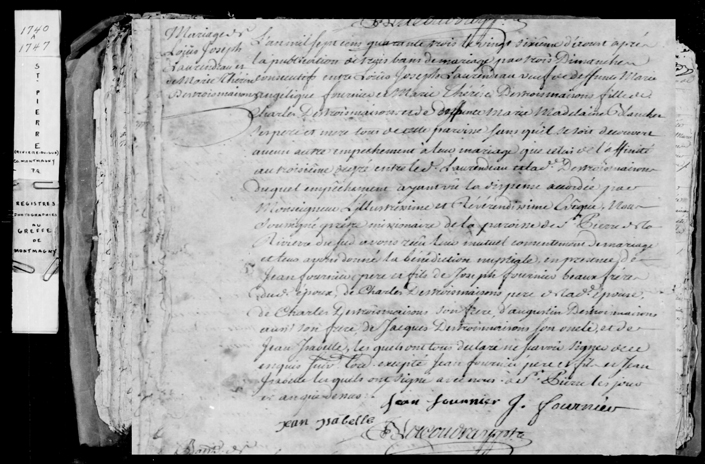 1740
A
1747
ST. PIERRE
(RIVIÈRE-DU-SUD)
CO. MONTMAGNY
REGISTRES
PHOTOGRAPHIÉS
AU
GREFFE
DE
MONTMAGNY
Mariage de
Loüis Joseph
Laurendeau et
de Marie Therese
Desroismaisons
L'an mil sept cens quarante trois le vingt sixieme d'écout après
la publication de trois bans de mariage par trois Dimanches
consecutifs entre Loüis Joseph Laurendeau veuf de deffunte Marie
Angelique fournier et Marie Thérése Desroismaisons fille de
Charles Desroismaisons et de deffunte Marie Madelaine
ses pere et mere tous de cette paroisse sans qu'il se soit decouvert
aucun autre empêchement à leur mariage que celui de l'affinité
au troisième degré entre led. Laurendeau et lad. Desroismaisons
duquel empêchement ayant vû la dispense accordée par
Monseigneur L'Illustrissime et Révérendissime Evêque, Nous
soussigné prêtre missionaire de la paroisse de St. Pierre de la
Riviere du sud avons reçu leur mutuel consentement de mariage
et leur avons donné la bénédiction nuptiale, en présence de
Jean fournier pere et fils de Joseph fournier beaux frère
dud. époux, de Charles Desroismaisons pere de lad. épouse,
de Charles Desroismaisons son frere d'augustin Desroismaisons
aussi son frere de Jacques Desroismaisons son oncle, et de
Jean Isabelle, lesquels ont tous declaré ne savoir signer de ce
enquis suiv. l'ord. excepté Jean fournier pere et fils et Jean
Isabelle lesquels ont signé avec nous à St. Pierre les jour
et an que dessus.
Jean fournier J. fournier
jean isabelle